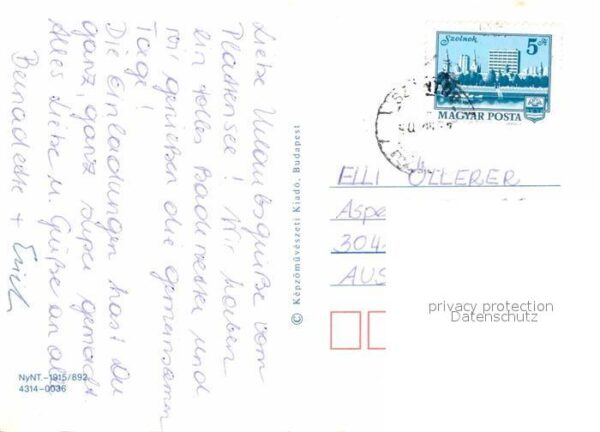 Liebe Urlaubsgrüße vom
Plattensee! Wir haben
ein tolles Badewetter und
wir genießen die gemeinsamen
Tage!
Die Einladungen hast Du
ganz, ganz super gemacht.
Alles Liebe u. Grüße an alle
Bernadette + Erich
NyNT.-1915/892
4314-0036
© Képzőművészeti Kiadó, Budapest
Szolnok
5 Ft
MAGYAR POSTA
ELLI ÖLLERER
Aspe
304
AUS
privacy protection
Datenschutz